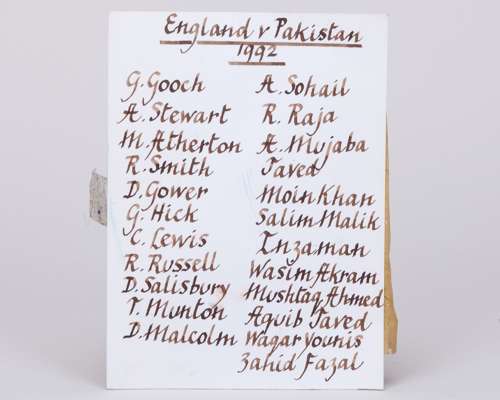 England v Pakistan
1992
G. Gooch
A. Stewart
M. Atherton
R. Smith
D. Gower
G. Hick
C. Lewis
R. Russell
D. Salisbury
T. Munton
D. Malcolm
A. Sohail
R. Raja
A. Mujaba
Javed
Moin Khan
Salim Malik
Inzaman
Wasim Akram
Mushtaq Ahmed
Aquib Javed
Waqar Younis
Zahid Fazal